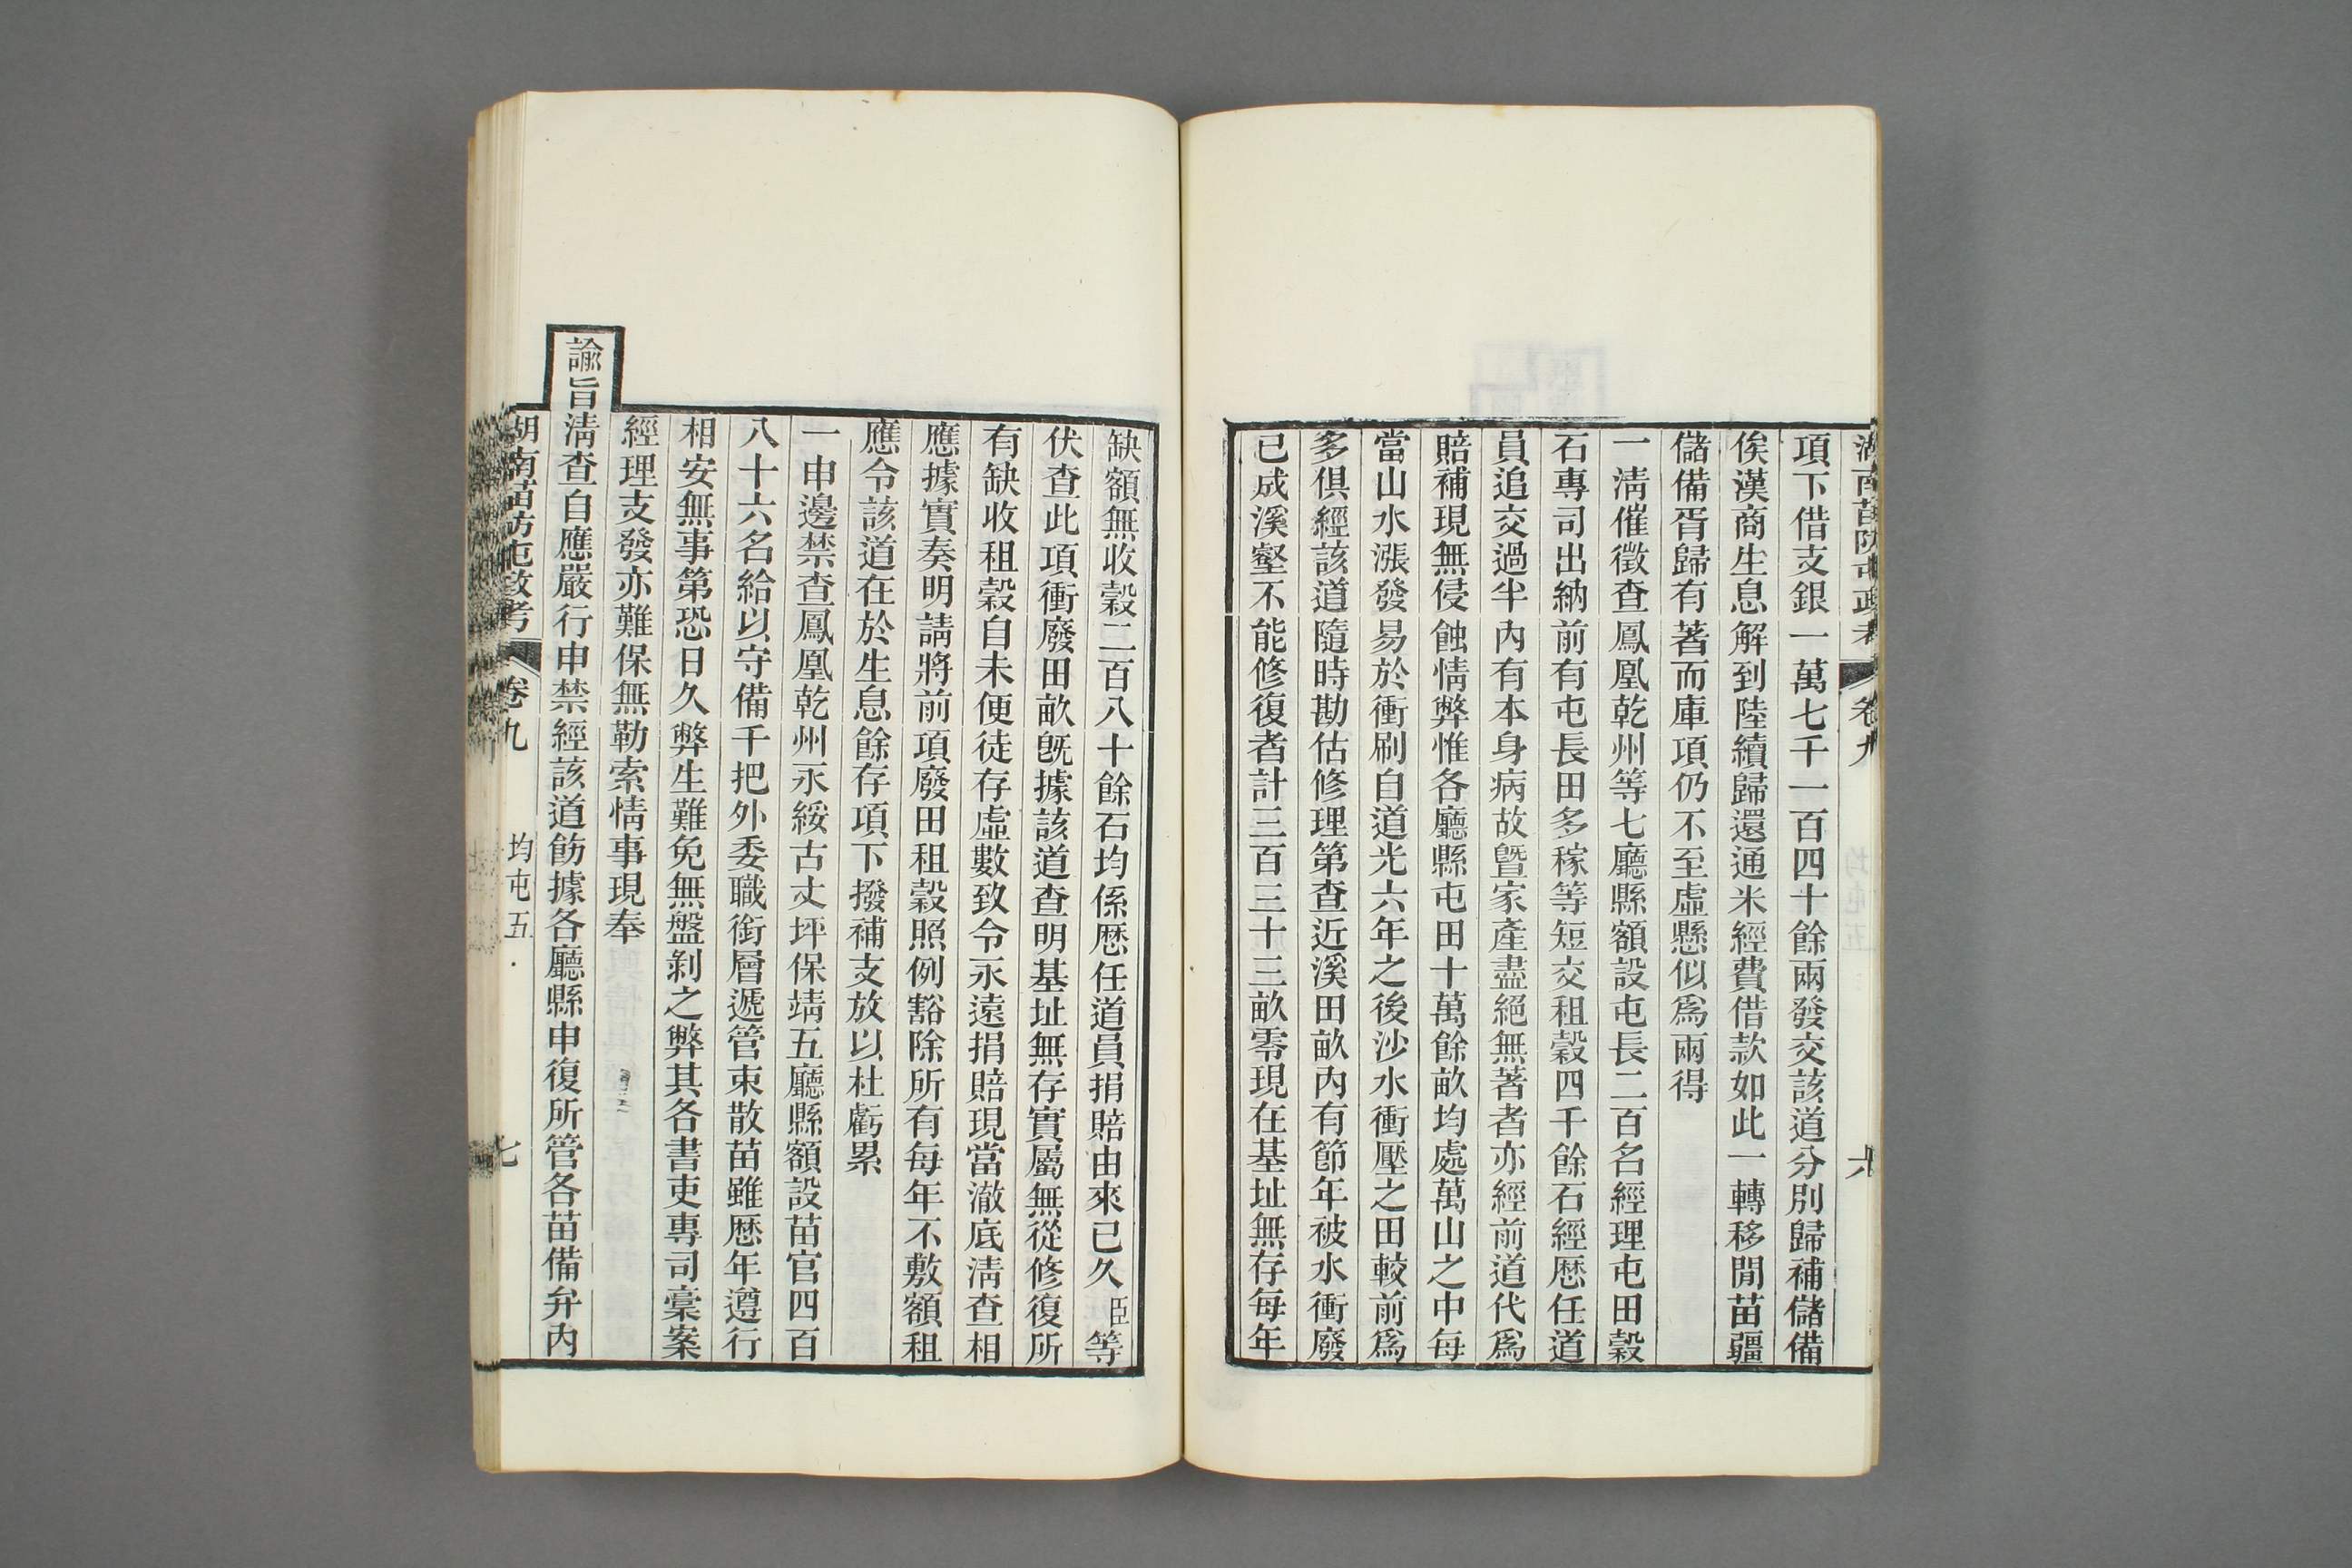 湖南苗防屯政考 卷九 六
項下借支銀一萬七千一百四十餘兩發交該道分別歸補儲備
俟漢商生息解到陸續歸還通米經費借款如此一轉移閒苗疆
儲備胥歸有著而庫項仍不至虛懸似爲兩得
一清催徵查鳳凰乾州等七廳縣額設屯長二百名經理屯田穀
石專司出納前有屯長田多稼等短交租穀四千餘石經歷任道
員追交過半內有本身病故曁家產盡絕無著者亦經前道代爲
賠補現無侵蝕情弊惟各廳縣屯田十萬餘畝均處萬山之中每
當山水漲發易於衝刷自道光六年之後沙水衝壓之田較前爲
多俱經該道隨時勘估修理第查近溪田畝內有節年被水衝廢
已成溪壑不能修復者計三百三十三畝零現在基址無存每年
缺額無收穀二百八十餘石均係歷任道員捐賠由來已久臣等
伏查此項衝廢田畝旣據該道查明基址無存實屬無從修復所
有缺收租穀自未便徒存虛數致令永遠捐賠現當澈底清查相
應據實奏明請將前項廢田租穀照例豁除所有每年不敷額租
應令該道在於生息餘存項下撥補支放以杜虧累
一申邊禁查鳳凰乾州永綏古丈坪保靖五廳縣額設苗官四百
八十六名給以守備千把外委職銜層遞管束散苗雖歷年遵行
相安無事第恐日久弊生難免無盤剝之弊其各書吏專司稾案
經理支發亦難保無勒索情事現奉
諭旨清查自應嚴行申禁經該道飭據各廳縣申復所管各苗備弁內
湖南苗防屯政考 卷九 均屯五 七